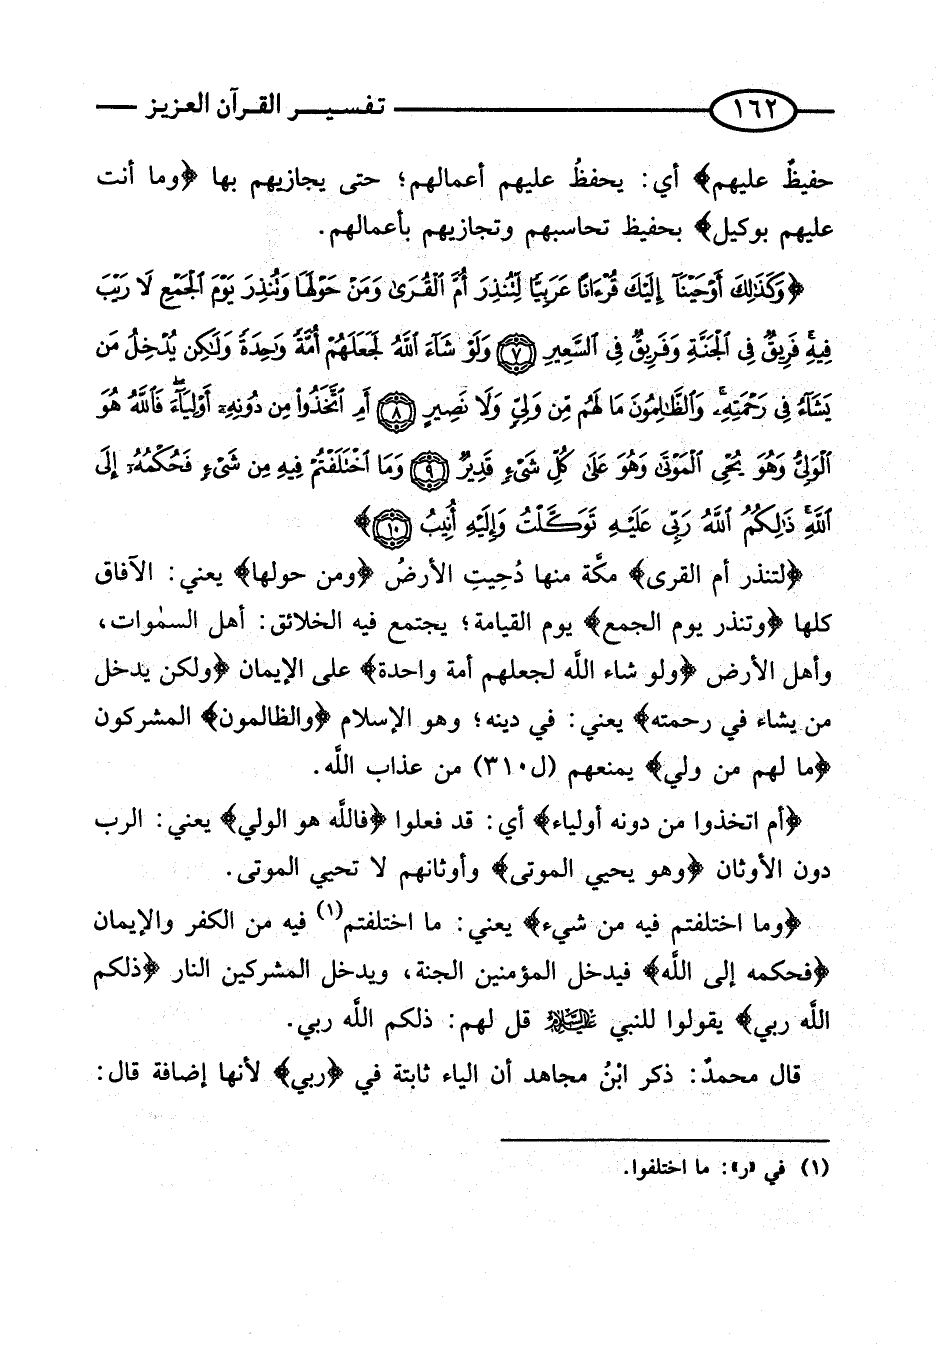 ١٦٢ تفسير القرآن العزيز
حفيظٌ عليهم﴾ أي: يحفظُ عليهم أعمالهم؛ حتى يجازيهم بها ﴿وما أنت
عليهم بوكيل﴾ بحفيظ تحاسبهم وتجازيهم بأعمالهم.
﴿وَكَذَٰلِكَ أَوْحَيْنَآ إِلَيْكَ قُرْءَانًا عَرَبِيًّا لِّتُنذِرَ أُمَّ ٱلْقُرَىٰ وَمَنْ حَوْلَهَا وَتُنذِرَ يَوْمَ ٱلْجَمْعِ لَا رَيْبَ
فِيهِ ۚ فَرِيقٌ فِى ٱلْجَنَّةِ وَفَرِيقٌ فِى ٱلسَّعِيرِ ۝٧ وَلَوْ شَآءَ ٱللَّهُ لَجَعَلَهُمْ أُمَّةً وَٰحِدَةً وَلَٰكِن يُدْخِلُ مَن
يَشَآءُ فِى رَحْمَتِهِۦ ۚ وَٱلظَّٰلِمُونَ مَا لَهُم مِّن وَلِىٍّ وَلَا نَصِيرٍ ۝٨ أَمِ ٱتَّخَذُوا۟ مِن دُونِهِۦٓ أَوْلِيَآءَ ۖ فَٱللَّهُ هُوَ
ٱلْوَلِىُّ وَهُوَ يُحْىِ ٱلْمَوْتَىٰ وَهُوَ عَلَىٰ كُلِّ شَىْءٍ قَدِيرٌ ۝٩ وَمَا ٱخْتَلَفْتُمْ فِيهِ مِن شَىْءٍ فَحُكْمُهُۥٓ إِلَى
ٱللَّهِ ۚ ذَٰلِكُمُ ٱللَّهُ رَبِّى عَلَيْهِ تَوَكَّلْتُ وَإِلَيْهِ أُنِيبُ ۝١٠﴾
﴿لتنذر أم القرى﴾ مكَّة منها دُحِيتِ الأرضُ ﴿ومن حولها﴾ يعني: الآفاق
كلها ﴿وتنذر يوم الجمع﴾ يوم القيامة؛ يجتمع فيه الخلائق: أهل السمٰوات،
وأهل الأرض ﴿ولو شاء اللَّه لجعلهم أمة واحدة﴾ على الإيمان ﴿ولكن يدخل
من يشاء في رحمته﴾ يعني: في دينه؛ وهو الإسلام ﴿والظالمون﴾ المشركون
﴿ما لهم من ولي﴾ يمنعهم (ل٣١٠) من عذاب اللَّه.
﴿أم اتخذوا من دونه أولياء﴾ أي: قد فعلوا ﴿فاللَّه هو الولي﴾ يعني: الرب
دون الأوثان ﴿وهو يحيي الموتى﴾ وأوثانهم لا تحيي الموتى.
﴿وما اختلفتم فيه من شيء﴾ يعني: ما اختلفتم(١) فيه من الكفر والإيمان
﴿فحكمه إلى اللَّه﴾ فيدخل المؤمنين الجنة، ويدخل المشركين النار ﴿ذلكم
اللَّه ربي﴾ يقولوا للنبي عليه السلام قل لهم: ذلكم اللَّه ربي.
قال محمدٌ: ذكر ابْنُ مجاهد أن الياء ثابتة في ﴿ربي﴾ لأنها إضافة قال:
(١) في «ر»: ما اختلفوا.